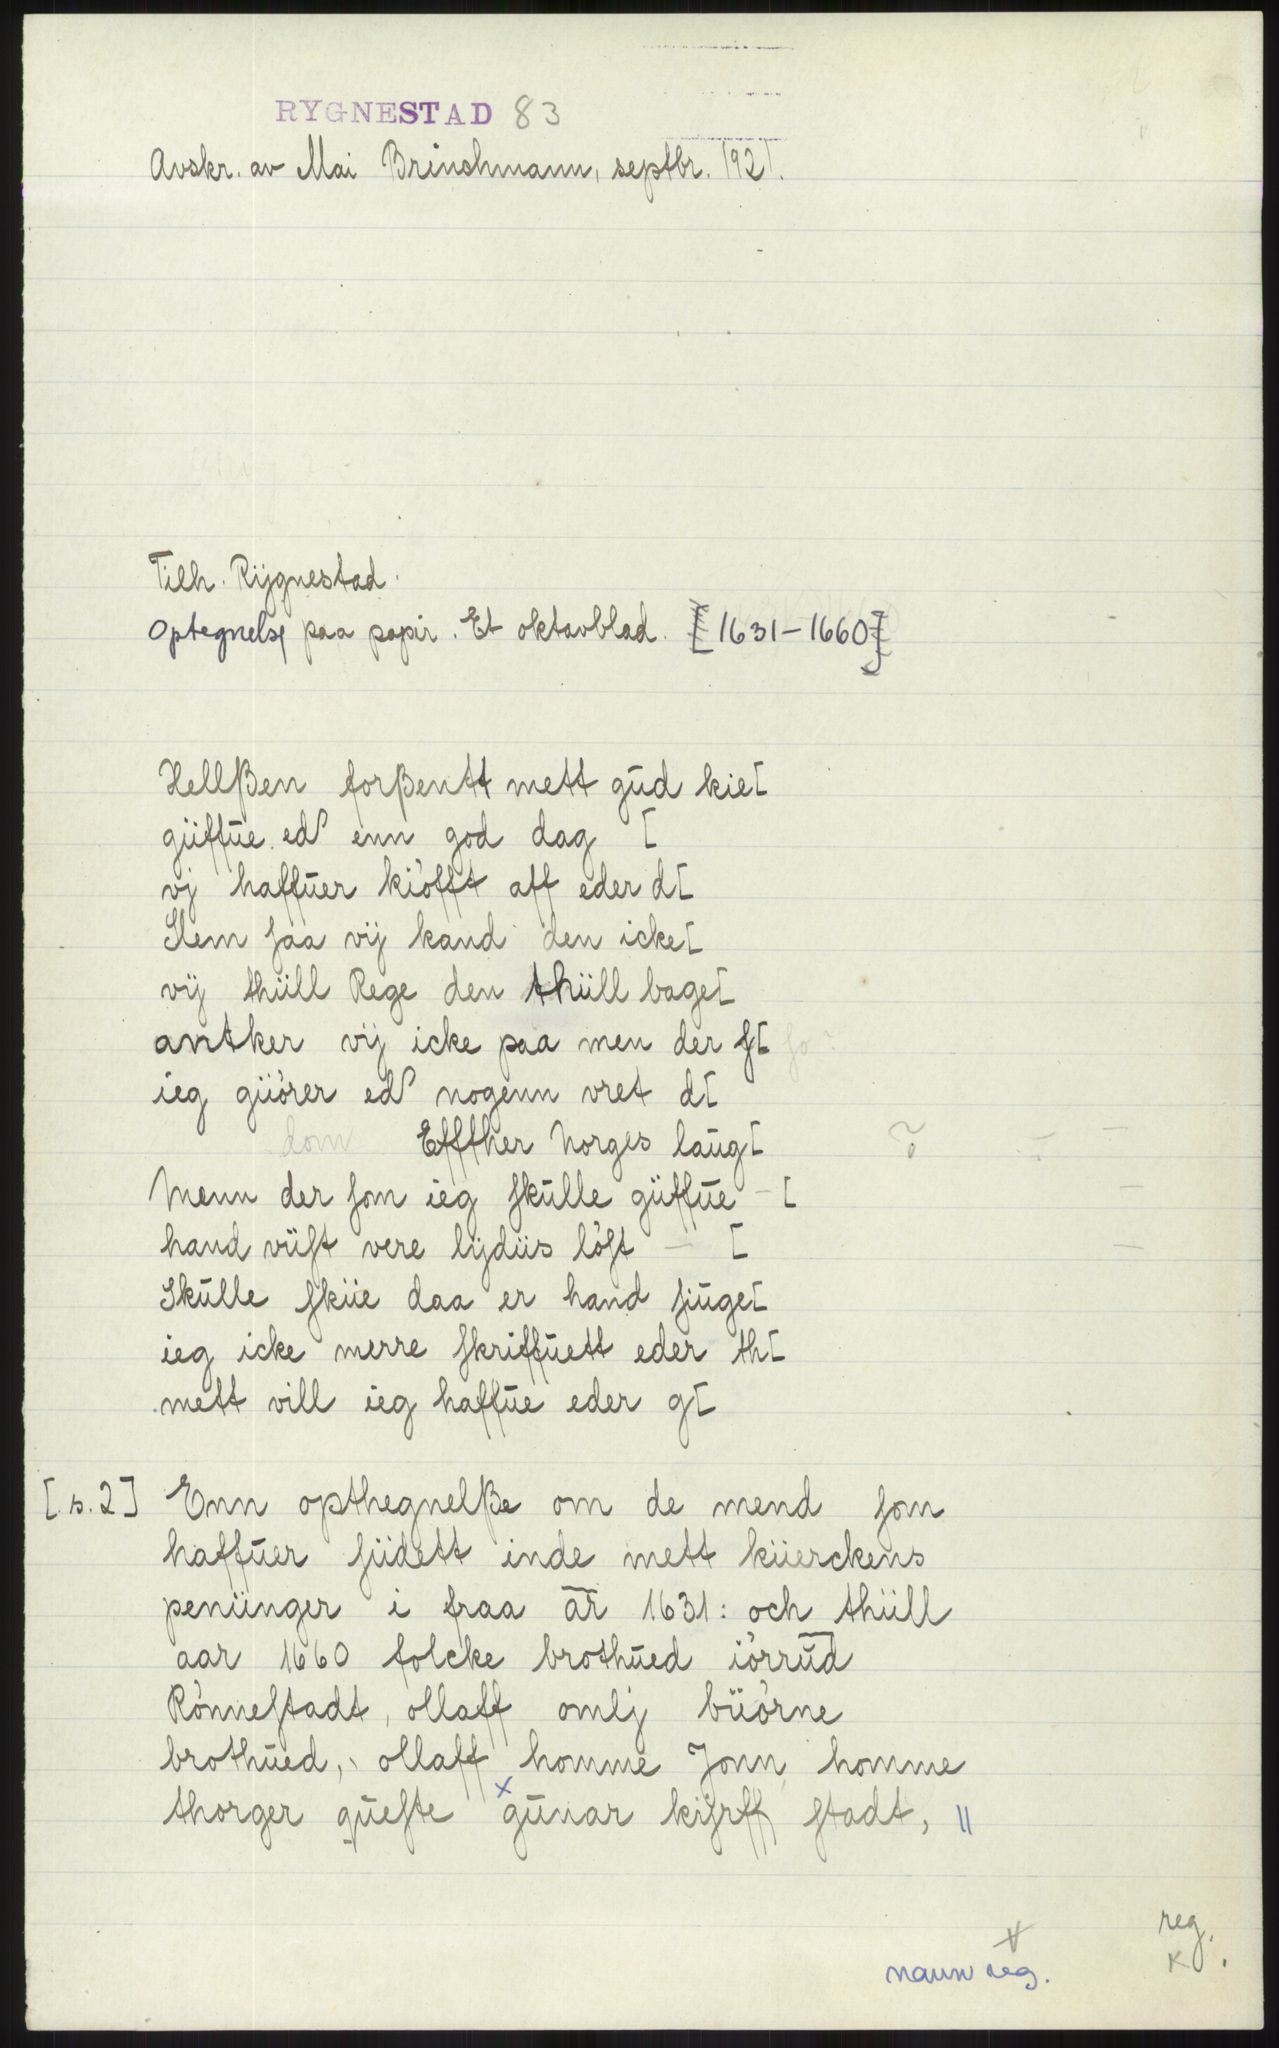 RYGNESTAD 83
Avskr. av Mai Brinchmann, septbr. 1921.
Tilh. Rÿgnestad.
Optegnelse paa papir. Et oktavblad. [1631-1660]
Hellßen forßentt mett gūd kie[
güffūe ed enn god dag [
vj haffūer kiöfft aff eder d[
Slem saa vij kand den icke[
vij thüll Rege den thüll bage[
antker vij icke paa men der s[ so?
ieg giörer ed nogenn vret d[
dom Effther Norges laūg[ ?
Menn der som ieg skūlle güffūe - [
hand vüst vere lijdüs löst - [
Skūlle sküe daa er hand siūge[
ieg icke merre skriffūett eder th[
mett vill ieg haffūe eder g[
[s. 2] Enn opthegnelße om de mend som
haffūer südett inde mett küerckens
penünger i fraa ār 1631: och thüll
aar 1660 folcke brothūed iörrūd
Rönnestadt, ollaff omlj büörne
brothūed, ollaff homme Jonn homme
thorger qūeste x gūnar kisrff stadt, ||
navn reg.
reg.
K.